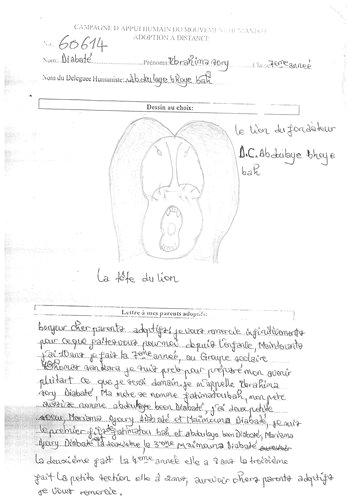 CAMPAGNE D'APPUI HUMAIN DU MOUVEMENT HUMANISTE
ADOPTION A DISTANCE
No: 60614
Nom: Diabaté Prénoms Ibrahima sory Classe 7ème année
Nom du Délégué Humaniste: Abdulaye bhoye bah
Dessin au choix:
Le lion du fondateur
D.C. Abdulaye bhoye
bah
La tête du lion
Lettre à mes parents adoptifs:
bonjour cher parents adoptifs, je vous remercie infiniments
pour ce que faites vous pour moi depuis l'enfance, Maintenants
j'ai 10 ans je fait la 7ème année, au Groupe scolaire
je suis pret pour préparé mon avenir
plutart ce que je serai demain, je m'appelle Ibrahima
sory Diabaté, Ma mère se nomme fatimatoubah, mon père
se nomme abdulaye ben Diabaté, j'ai deux petite
soeur, Mariama djoury Diabaté et Maïmouna Diabaté, je suis
le premier fils fatimatou bah et abdulaye ben Diabaté, Mariama
djoury Diabaté est la deuxième le 3ème Maïmouna Diabaté
la deuxième fait la 4ème année elle a 7 ans la troisième
fait la petite section elle à 2 ans, aurevoir chers parents adoptifs
je vous remercie.